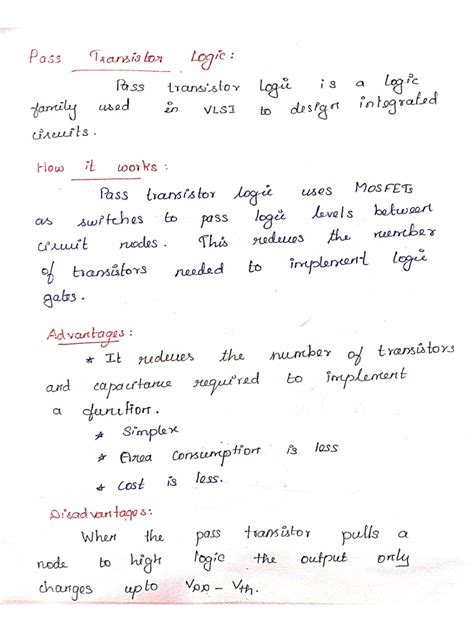 Pass Transistor Logic:
Pass transistor logic is a logic
family used in VLSI to design integrated
circuits.
How it works:
Pass transistor logic uses MOSFETs
as switches to pass logic levels between
circuit nodes. This reduces the number
of transistors needed to implement logic
gates.
Advantages:
* It reduces the number of transistors
and capacitance required to implement
a function.
* Simplex
* Area Consumption is less
* Cost is less.
Disadvantages:
When the pass transistor pulls a
node to high logic the output only
changes upto VDD - Vth.